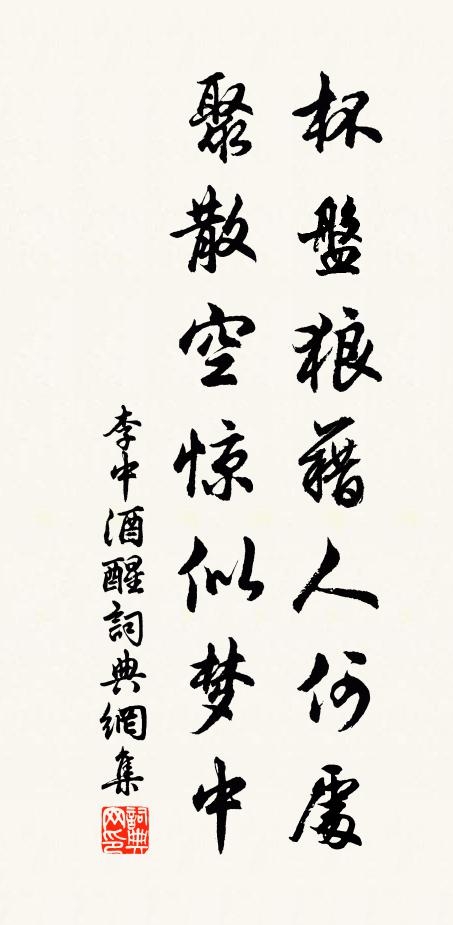 杯盤狼藉人何處
聚散空惊似梦中
李中酒醒詞典網集
詞典网印